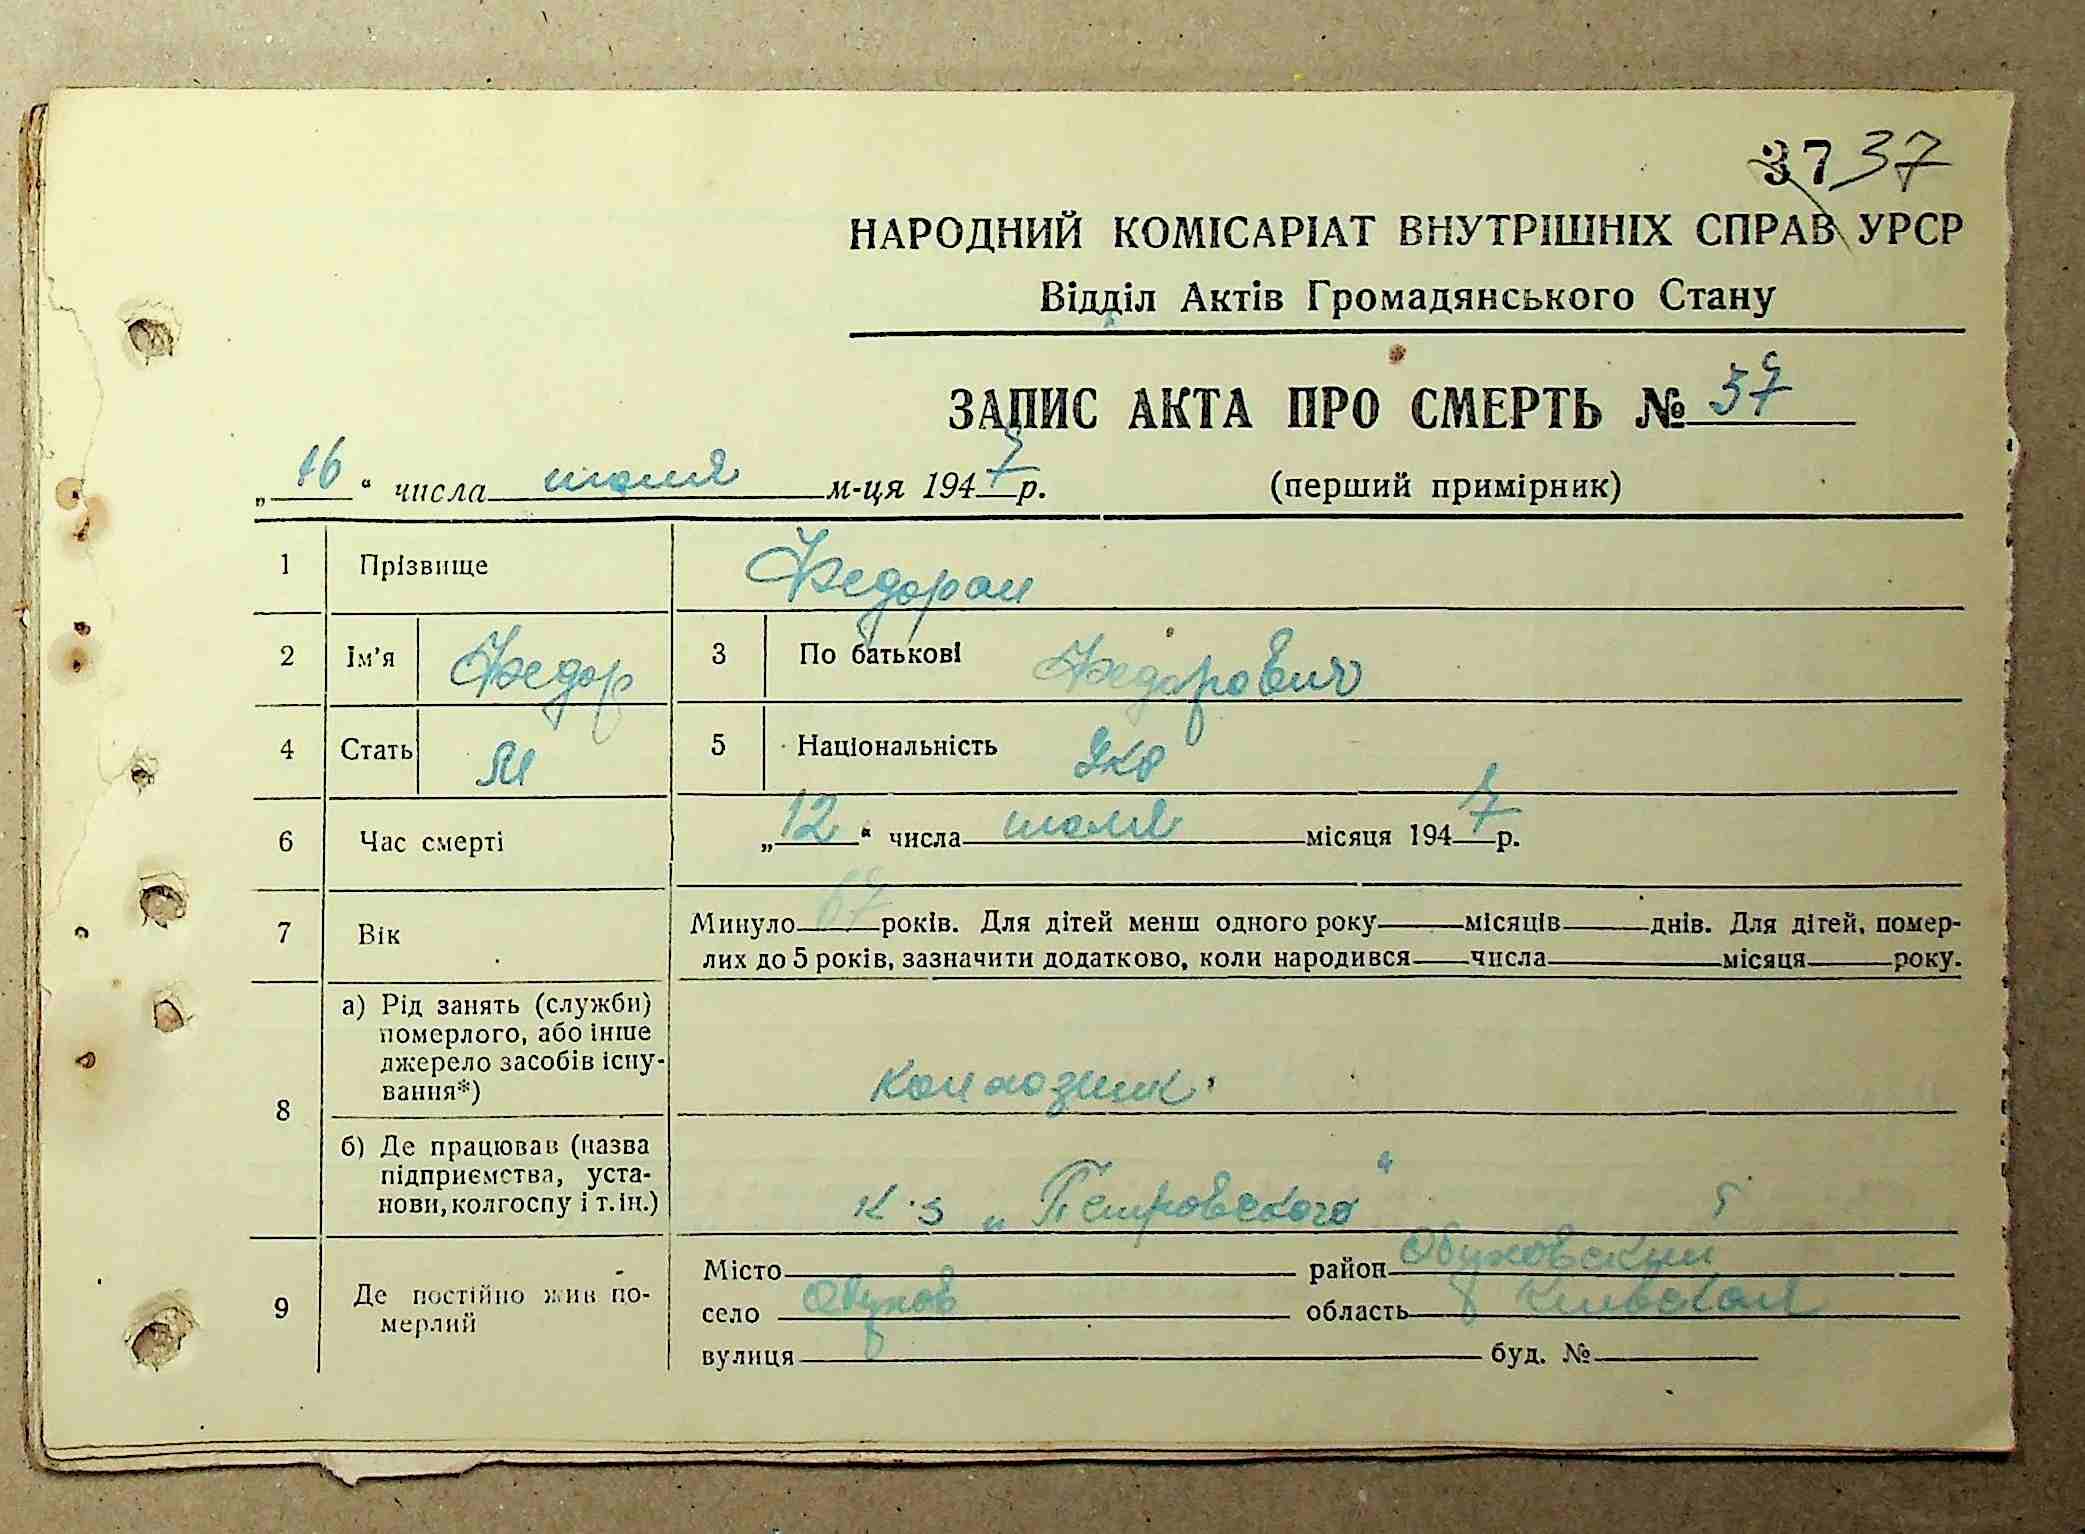 37 37
НАРОДНИЙ КОМІСАРІАТ ВНУТРІШНІХ СПРАВ УРСР
Відділ Актів Громадянського Стану
ЗАПИС АКТА ПРО СМЕРТЬ № 37
„16“ числа июля м-ця 1947 р. (перший примірник)
1 Прізвище Федоран
2 Ім'я Федор 3 По батькові Федорович
4 Стать М 5 Національність Укр
6 Час смерті „12“ числа июля місяця 1947 р.
7 Вік Минуло 67 років. Для дітей менш одного року місяців днів. Для дітей, помер-
лих до 5 років, зазначити додатково, коли народився числа місяця року.
8 а) Рід занять (служби)
померлого, або інше
джерело засобів існу-
вання*) колхозник
б) Де працював (назва
підприємства, уста-
нови, колгоспу і т. ін.) к-з „Петровского“
9 Де постійно жив по-
мерлий
Місто район Обуховский
село Обухов область Киевская
вулиця буд. №